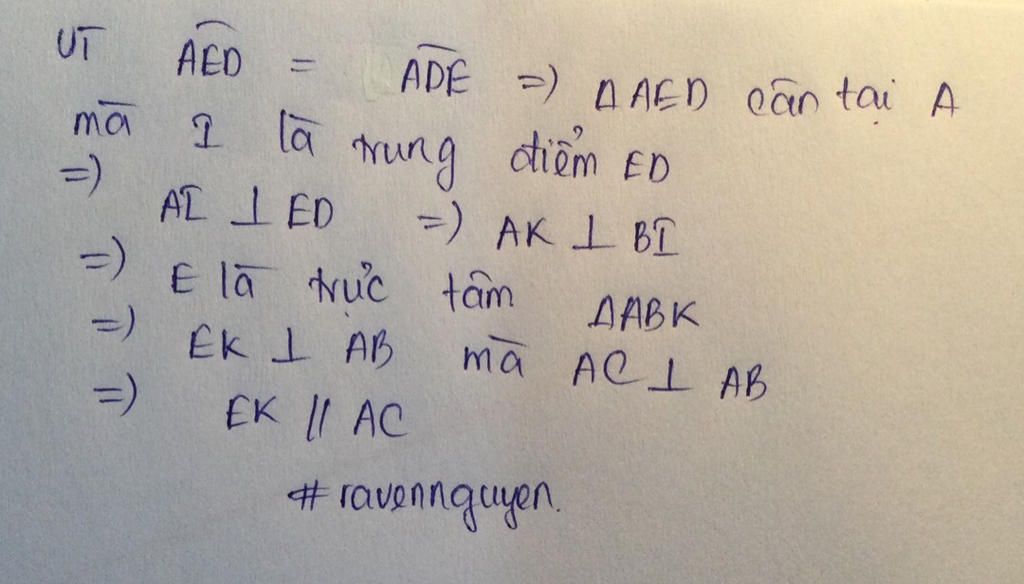 Vì AED = ADE => ΔAED cân tại A
mà I là trung điểm ED
=> AI ⊥ ED => AK ⊥ BI
=> E là trực tâm ΔABK
=> EK ⊥ AB mà AC ⊥ AB
=> EK // AC
#ravennguyen.